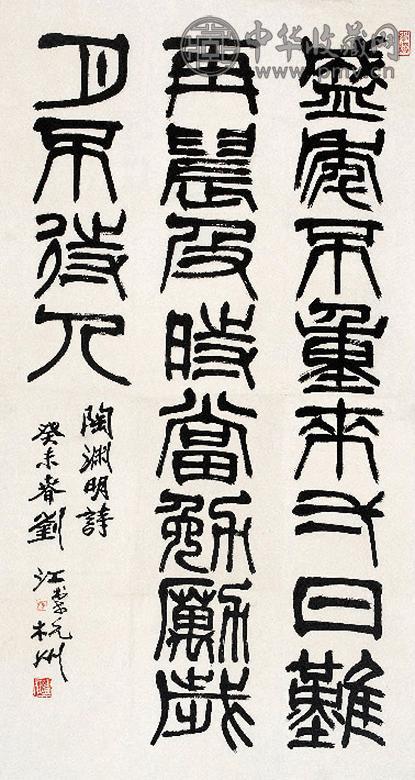 盛年不重來弌日難
再晨及時當勉勵歲
月不待人
陶淵明詩
癸未春劉江書於杭州
中华收藏网